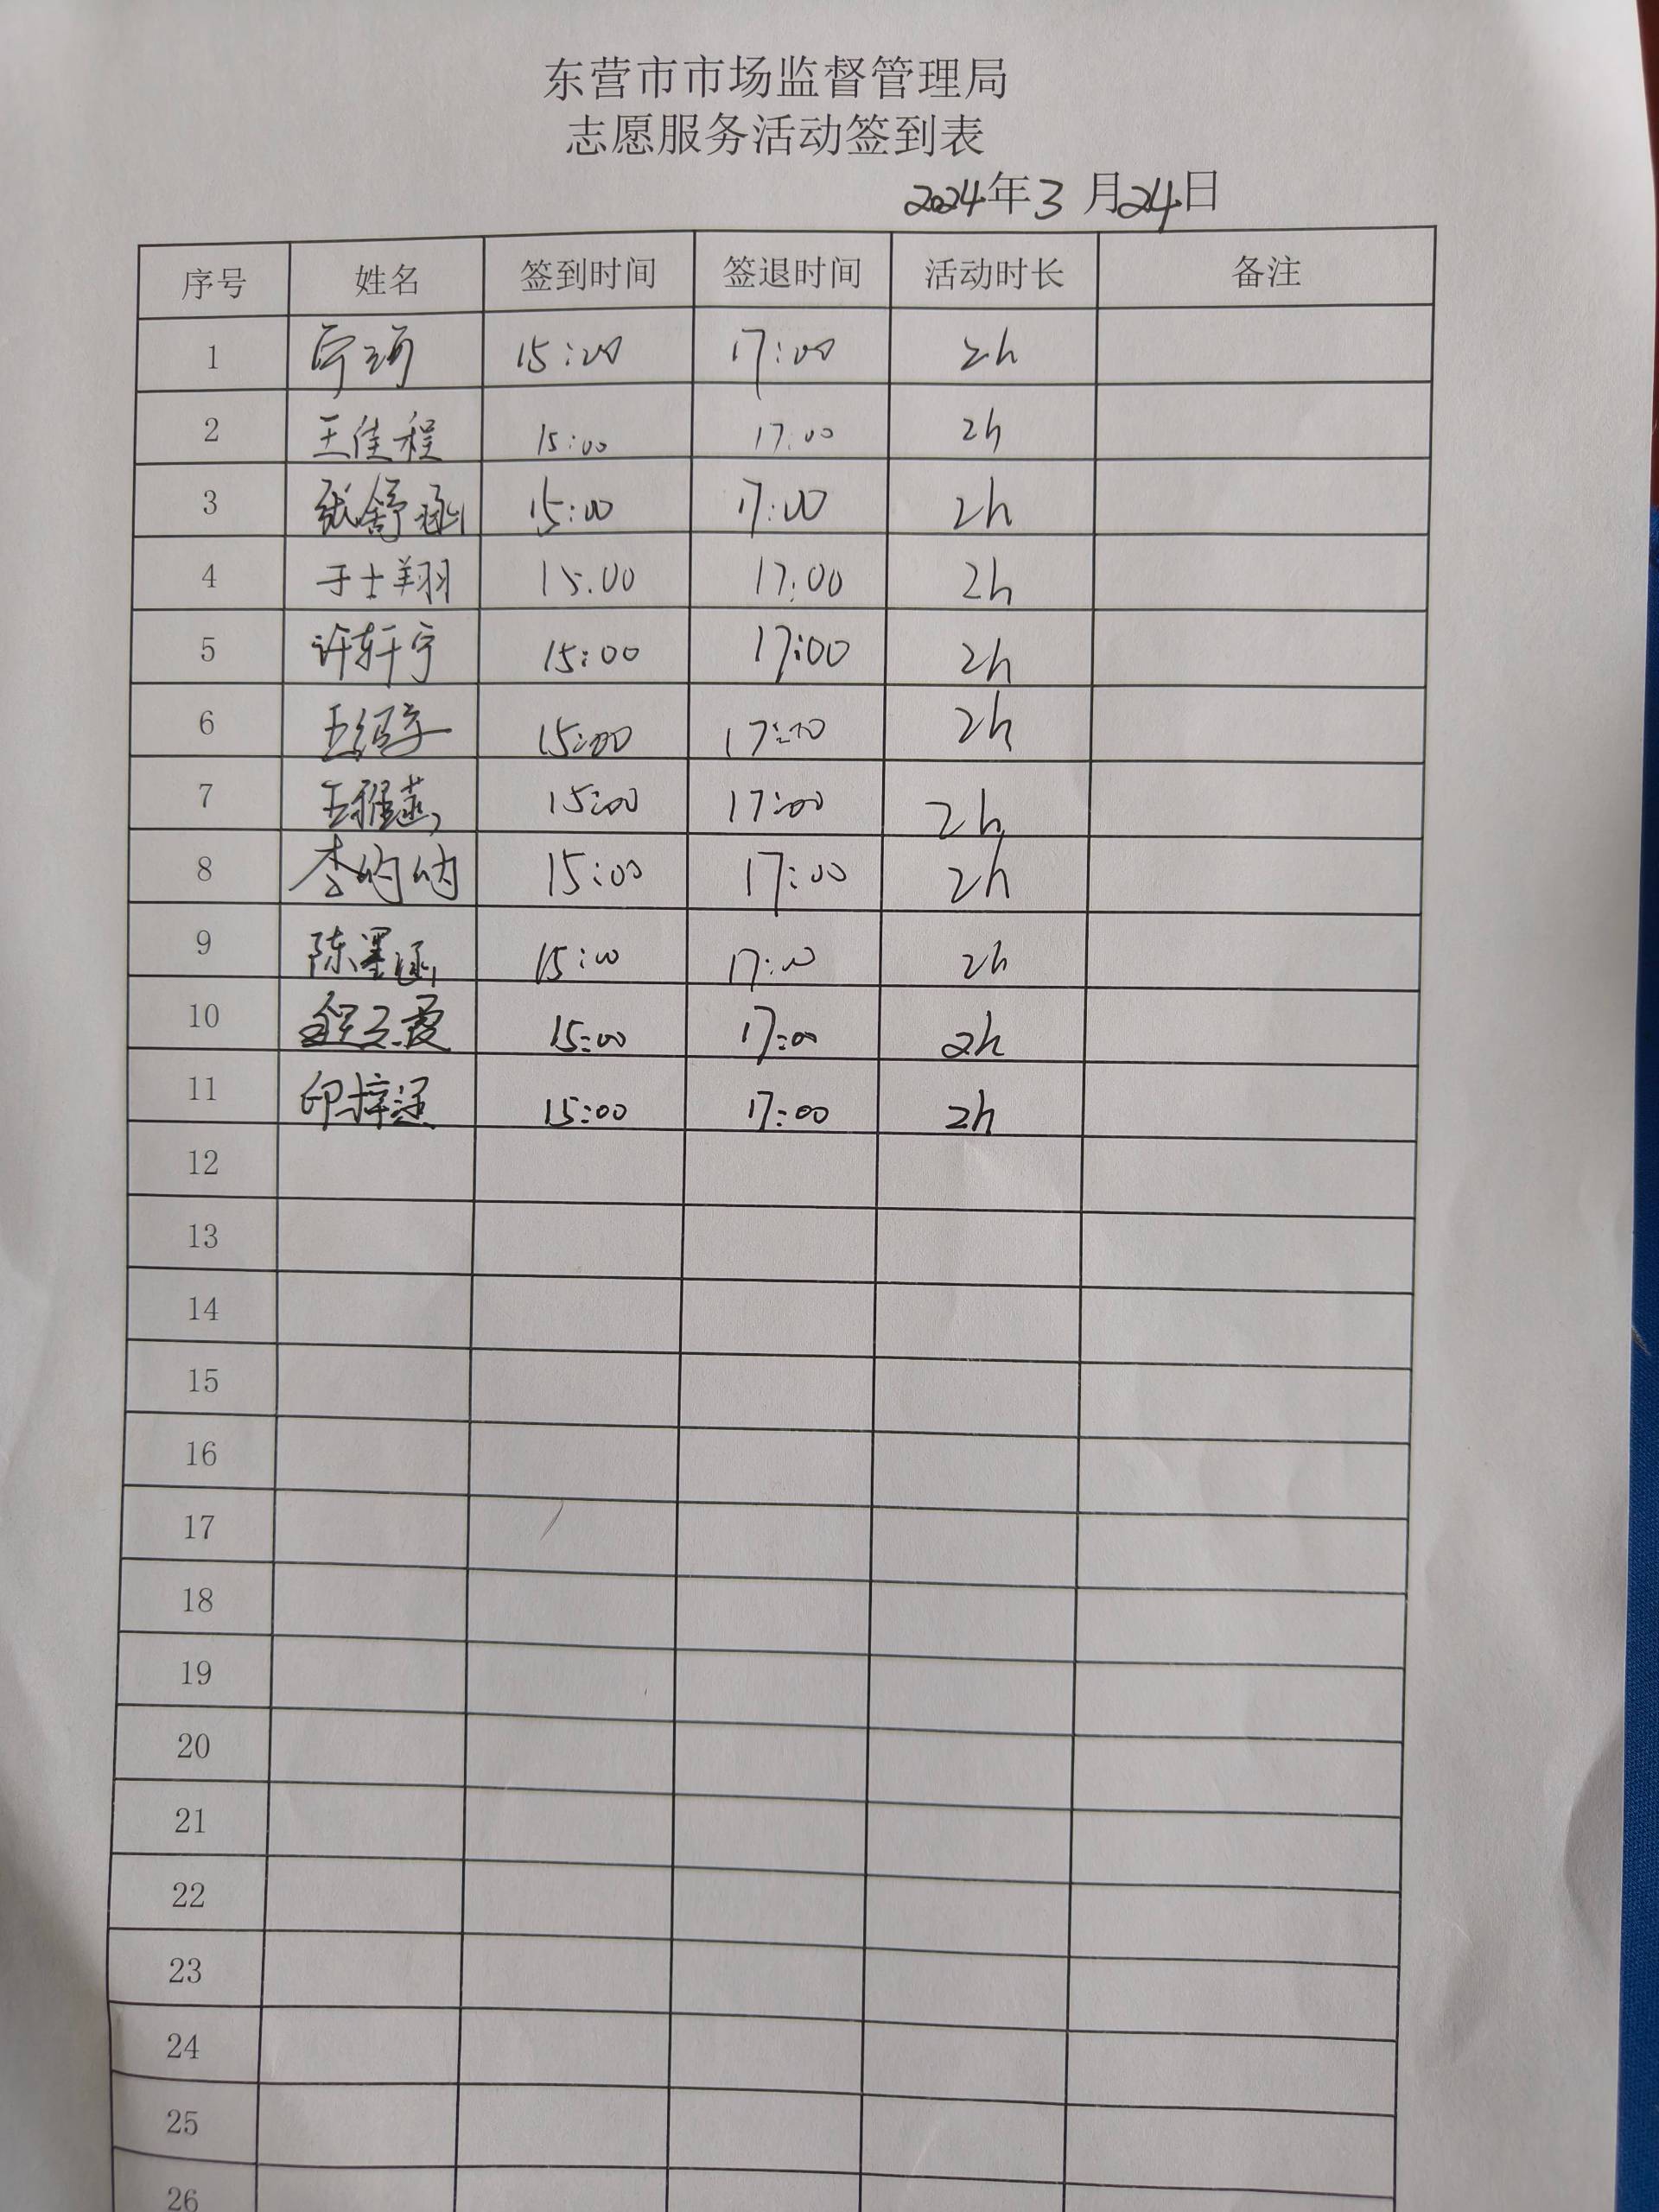 东营市市场监督管理局
志愿服务活动签到表
2024年3月24日
序号 姓名 签到时间 签退时间 活动时长 备注
1 15:00 17:00 2h
2 王佳程 15:00 17:00 2h
3 张舒涵 15:00 17:00 2h
4 于士翔 15:00 17:00 2h
5 许轩宁 15:00 17:00 2h
6 15:00 17:00 2h
7 15:00 17:00 2h
8 李的的 15:00 17:00 2h
9 陈墨涵 15:00 17:00 2h
10 15:00 17:00 2h
11 15:00 17:00 2h
12
13
14
15
16
17
18
19
20
21
22
23
24
25
26